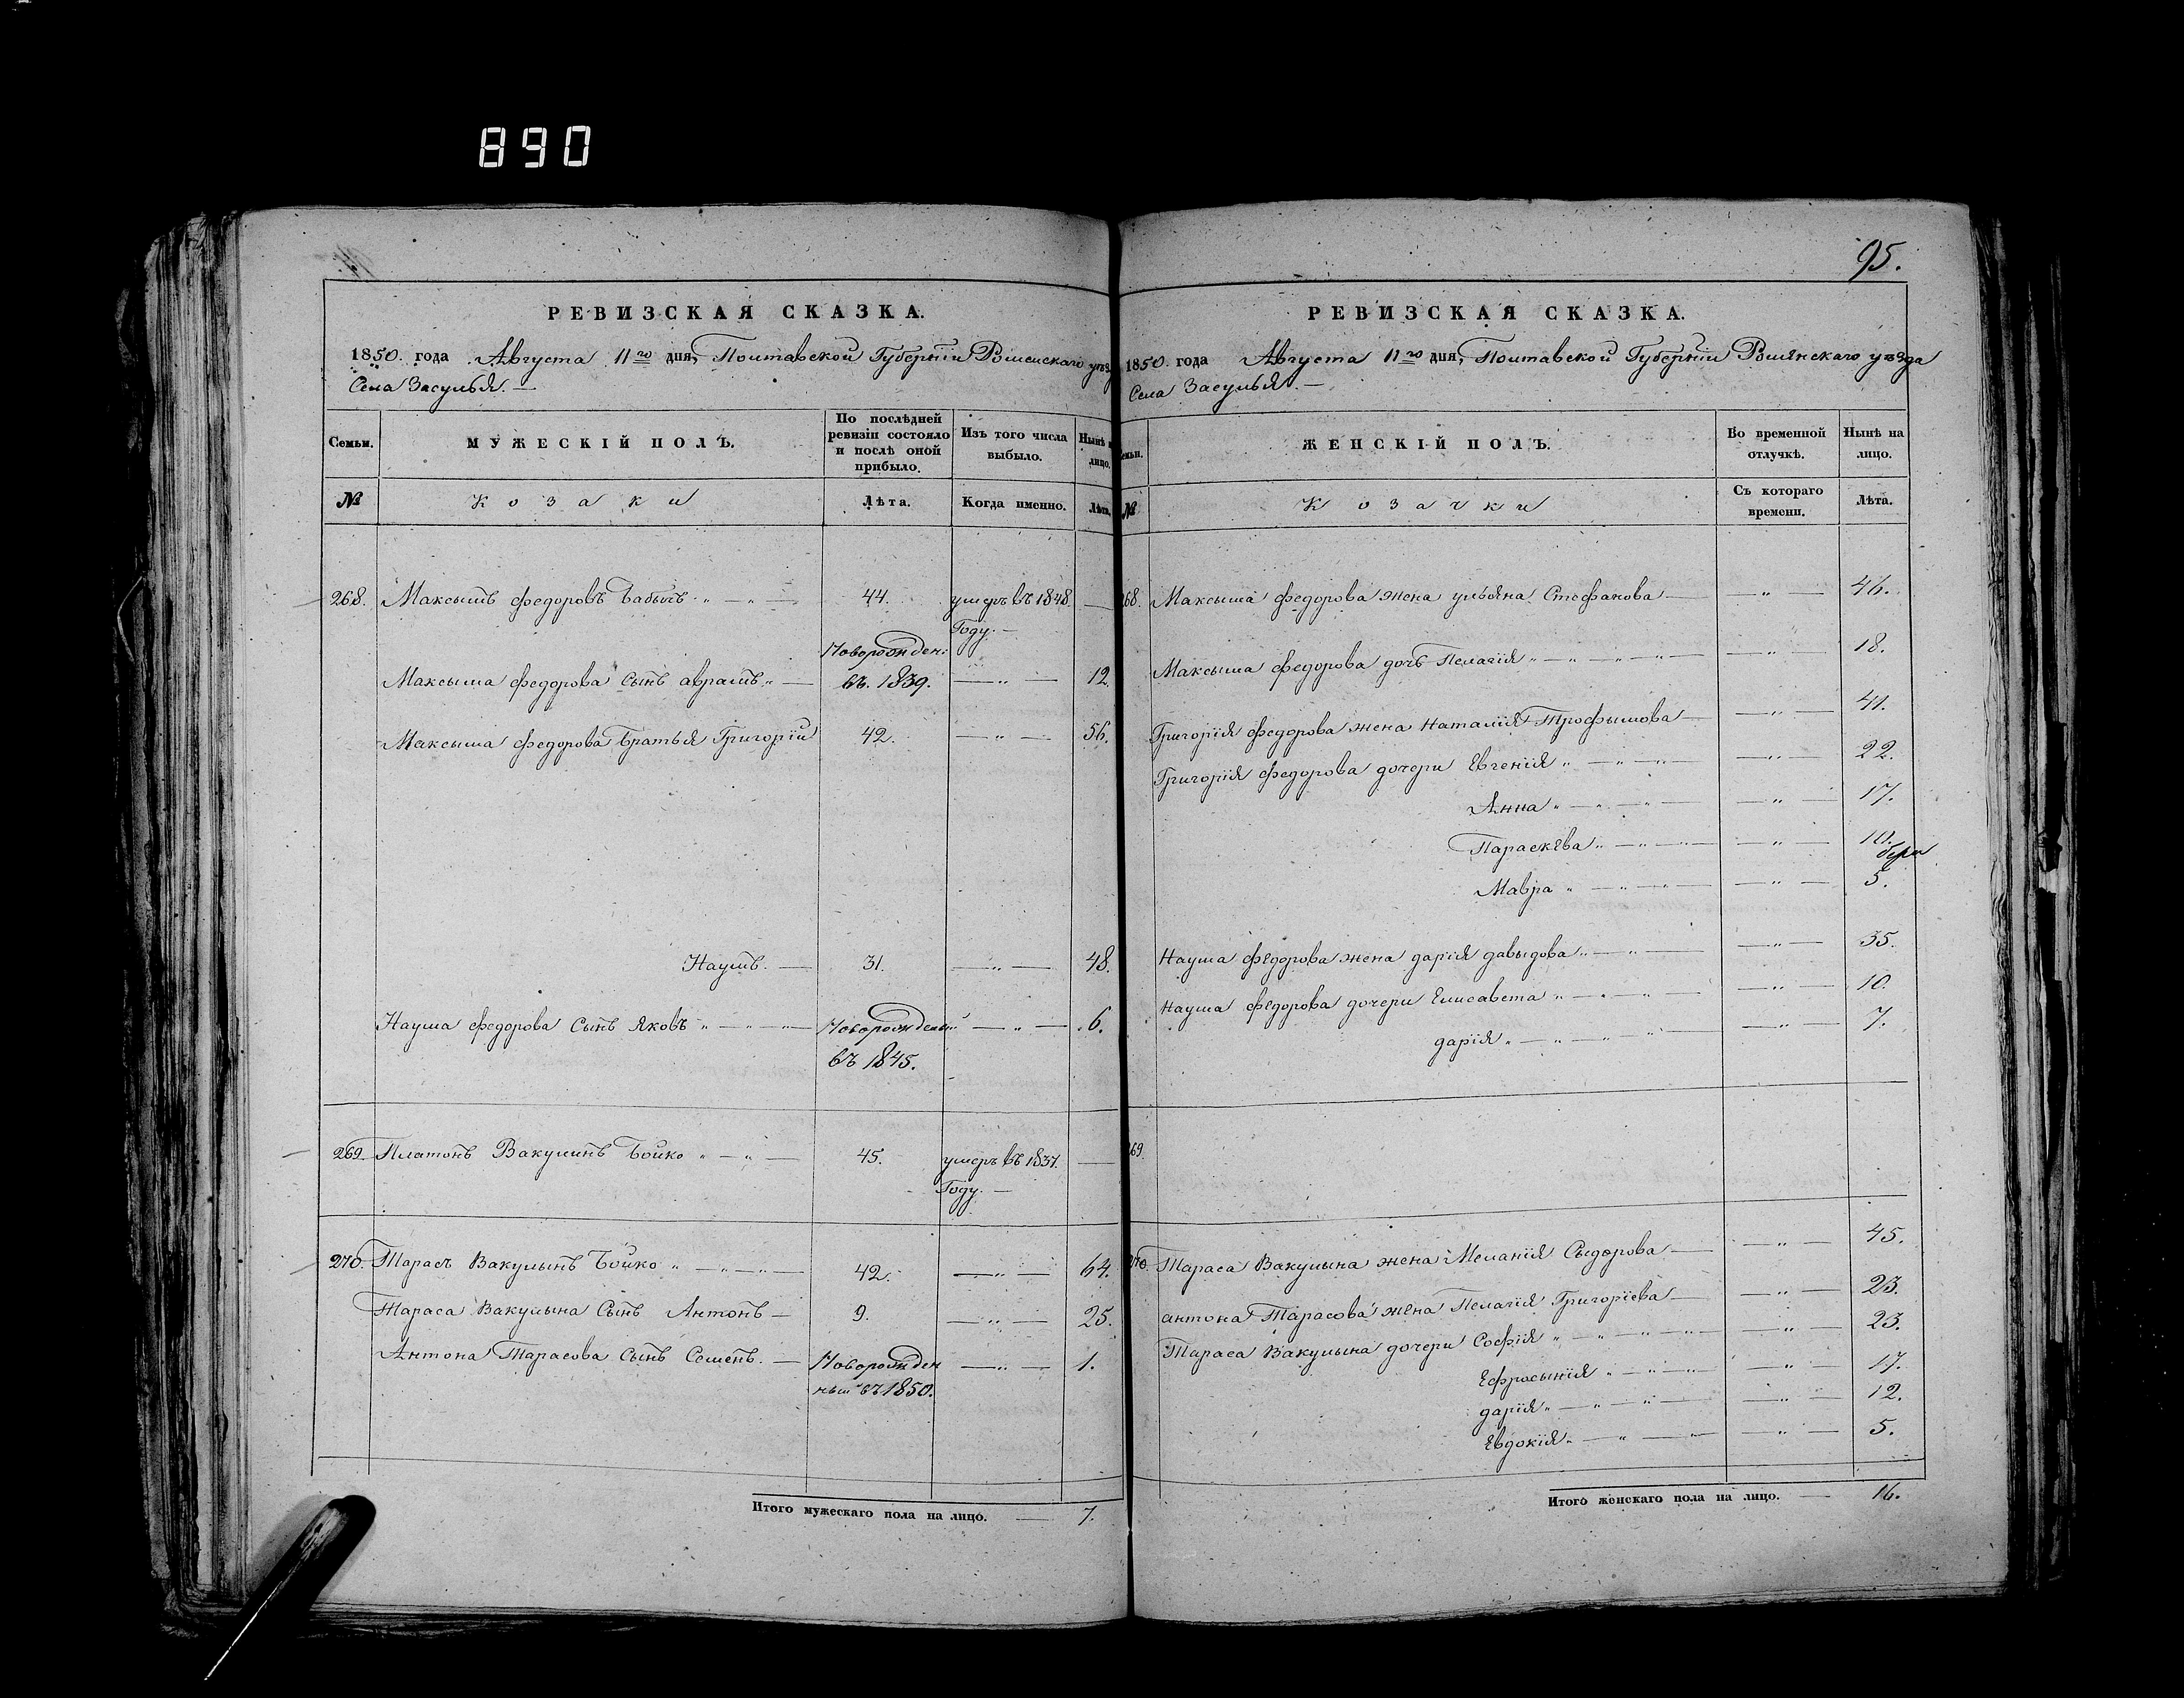 890
95.
РЕВИЗСКАЯ СКАЗКА.
1850. года Августа 11го дня, Полтавской Губерніи Роменскаго уѣз
Села Засулья. —
Семьи. МУЖЕСКІЙ ПОЛЪ. По послѣдней ревизіи состояло и послѣ оной прибыло. Изъ того числа выбыло. Нынѣ н лицо.
№ Козаки Лѣта. Когда именно. Лѣта.
268. Максымъ федоровъ Бабычъ. „ — „ — 44. умеръ въ 1848 —
Году. —
Новорожден:
Максыма федорова Сынъ аврамъ „ — въ. 1839. — „ — 12.
Максыма федорова Братья Григорій 42. — „ — 56.
Наумъ. — 31. — „ — 48.
Наума федорова Сынъ яковъ „ — „ — Новорожденъ — „ — 6.
въ 1845.
269. Платонъ Вакулинъ Бойко „ — „ — 45. умеръ въ 1837. —
Году. —
270. Тарасъ Вакулынъ Бойко „ — „ — 42. — „ — 64.
Тараса Вакулына Сынъ Антонъ — 9. — „ — 25.
Антона Тарасова Сынъ Семенъ. — Новорожден — „ — 1.
ный въ 1850.
Итого мужескаго пола на лицо. — 7.
РЕВИЗСКАЯ СКАЗКА.
1850. года Августа 11го дня, Полтавской Губерніи Роменскаго уѣзда
Села Засулья. —
емьи. ЖЕНСКІЙ ПОЛЪ. Во временной отлучкѣ. Нынѣ на лицо.
№ Козачки Съ котораго времени. Лѣта.
68. Максыма федорова жена ульяна Стефанова — „ — 46.
Максыма федорова дочь Пелагія „ — „ — „ — — „ — 18.
Григорія федорова жена Наталія Трофымова — — „ — 41.
Григорія федорова дочери Евгенія „ — „ — — „ — 22.
Анна „ — „ — „ — — „ — 17.
Параскева „ — „ — „ — — „ — 10.
Мавра „ — „ — — „ — 5.
Наума федорова жена дарія давыдова „ — „ — — „ — 35.
Наума федорова дочери Елисавета „ — „ — — „ — 10.
дарія „ — „ — „ — — „ — 7.
269.
270. Тараса Вакулына жена Меланія Сыдорова — — „ — 45.
антона Тарасова жена Пелагія Григоріева — — „ — 23.
Тараса Вакулына дочери Софія „ — „ — „ — — „ — 23.
Ефросынія „ — „ — — „ — 17.
дарія „ — „ — „ — — „ — 12.
Евдокія „ — „ — — „ — 5.
Итого женскаго пола на лицо. — 16.